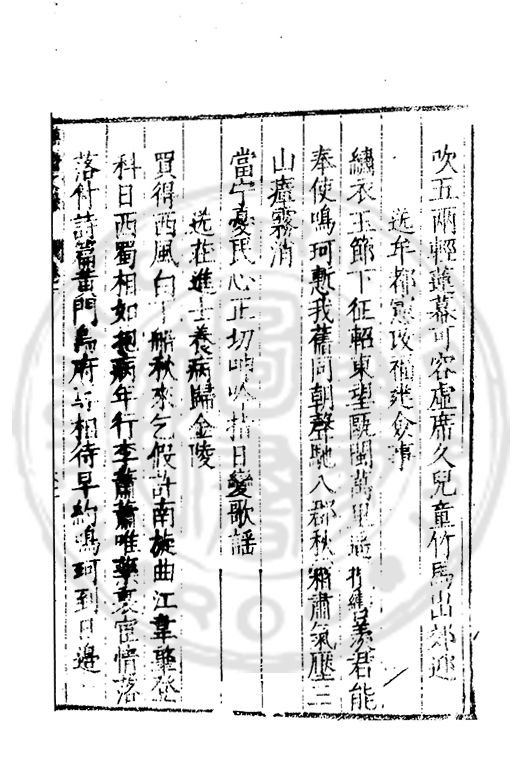 吹五兩輕蓮幕可容虛席久兒童竹馬出郊迎
送牟都憲改福建僉事
繡衣玉節下征軺東望甌閩萬里遙持羨君能
奉使鳴珂慙我舊同朝聲馳八郡秋霜肅氣壓三
山瘴霧消
當宁憂民心正切呻吟指日變歌謠
送莊進士養病歸金陵
買得西風白下船秋來乞假許南旋曲江羣彥登
科日西蜀相如抱病年行李蕭蕭唯藥裹宦情落
落付詩篇黃門烏府與相待早約鳴珂到日邊